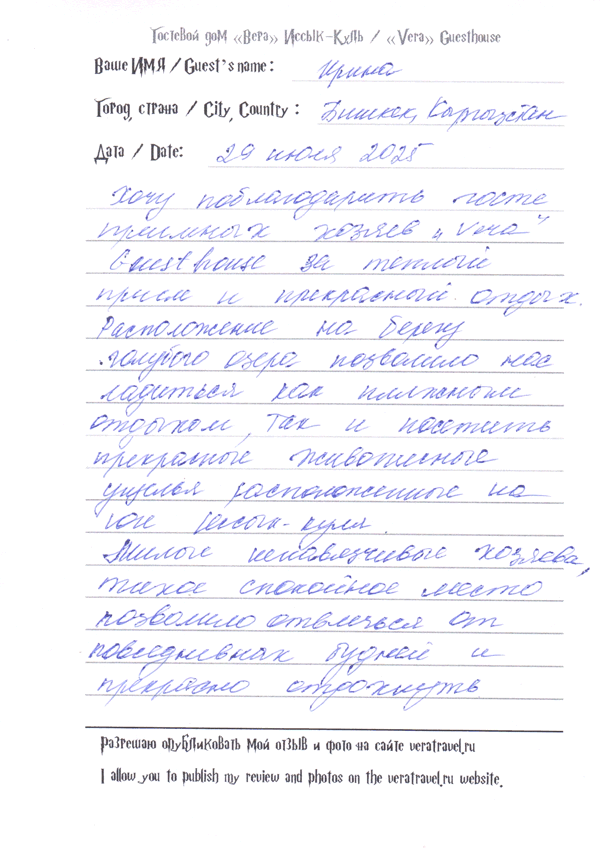 Гостевой дом «Вера» Иссык-Куль / «Vera» Guesthouse
Ваше ИМЯ / Guest's name: Ирина
Город, страна / City, Country: Бишкек, Кыргызстан
Дата / Date: 29 июля 2025
Хочу поблагодарить госте
приимных хозяев „Vera"
Guest house за теплый
прием и прекрасный отдых.
Расположение на берегу
голубого озера позволило нас
ладиться как пляжным
отдыхом, так и посетить
прекрасные живописные
ущелья расположенные на
юге Иссык-куля.
Милые ненавязчивые хозяева,
тихое спокойное место
позволило отвлечься от
повседневных будней и
прекрасно отдохнуть
Разрешаю опубликовать мой отзыв и фото на сайте veratravel.ru
I allow you to publish my review and photos on the veratravel.ru website.